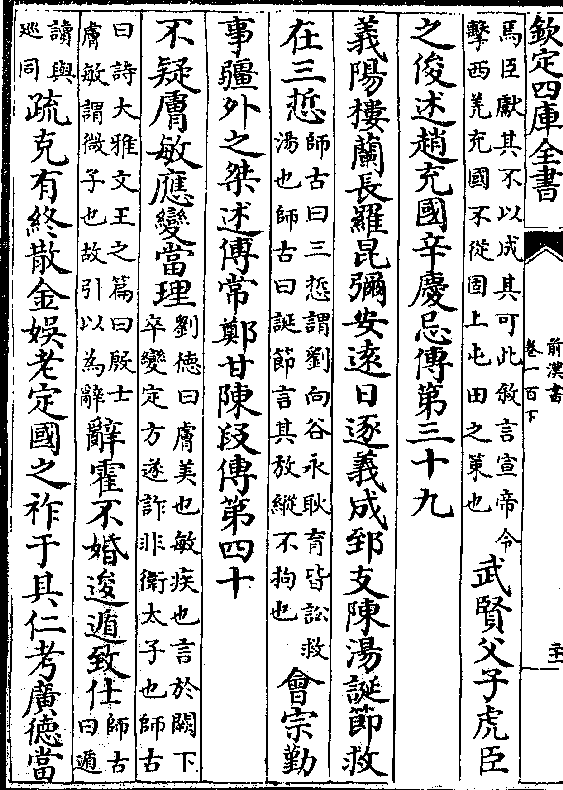 欽定四庫全書
前漢書
卷一百下
馬臣獻其不以成其可此敘言宣帝令
擊西羌充國不從固上屯田之策也
武賢父子虎臣
之俊述趙充國辛慶忌傳第三十九
義陽樓蘭長羅昆彌安遠日逐義成郅支陳湯誕節救
在三悊
師古曰三悊謂劉向谷永耿育皆訟救
湯也師古曰誕節言其放縱不拘也
會宗勤
事疆外之桀述傅常鄭甘陳段傳第四十
不疑膚敏應變當理
劉德曰膚美也敏疾也言於闕下
卒變定方遂詐非衛太子也師古
曰詩大雅文王之篇曰殷士
膚敏謂微子也故引以為辭
辭霍不婚逡遁致仕
師古
曰遁
讀與
巡同
疏克有終散金娛老定國之祚于其仁考廣德當